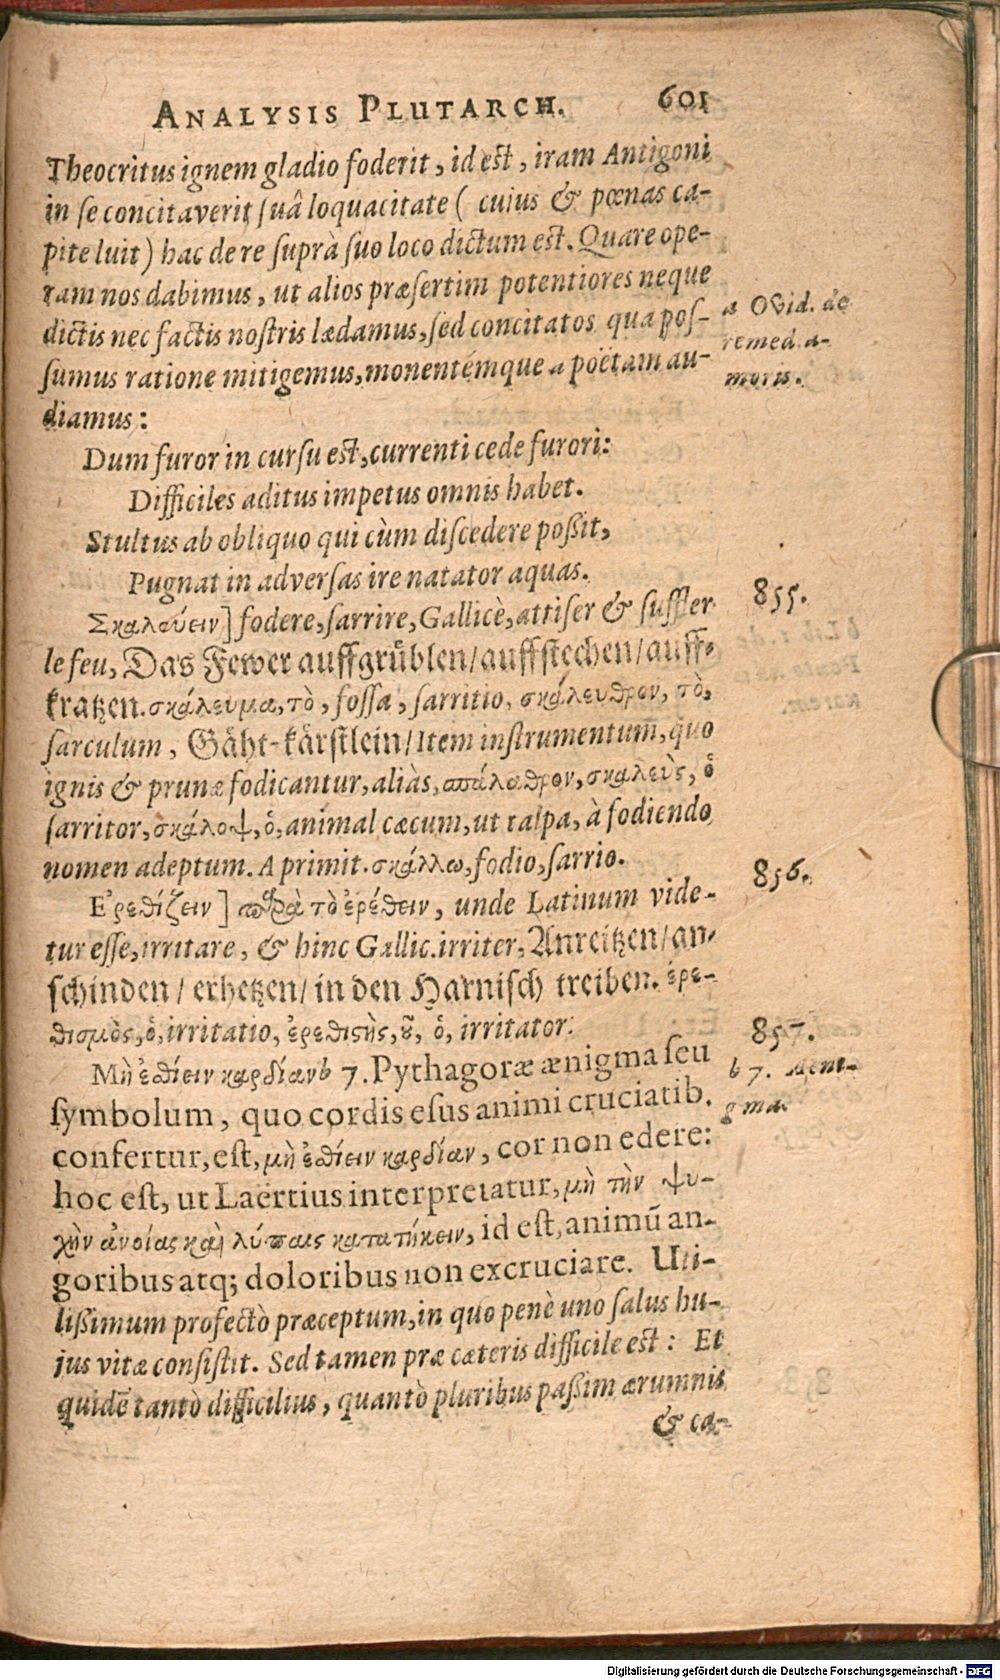 ANALYSIS PLUTARCH. 601
Theocritus ignem gladio foderit, id est, iram Antigoni
in se concitaverit suâ loquacitate ( cuius & pœnas ca-
pite luit) hac de re suprà suo loco dictum est. Quare ope-
ram nos dabimus, ut alios præsertim potentiores neque
dictis nec factis nostris lædamus, sed concitatos qua pos-
sumus ratione mitigemus, monentémque a poëtam au-
diamus:
a Ovid. de
remed. a-
moris.
Dum furor in cursu est, currenti cede furori:
Difficiles aditus impetus omnis habet.
Stultus ab obliquo qui cùm discedere poßit,
Pugnat in adversas ire natator aquas.
855.
Σκαλεύειν] fodere, sarrire, Gallicè, attiser & suffler
le feu, Das Fewer auffgrüblen/auffstechen/auff-
kratzen. σκάλευμα, τὸ, fossa, sarritio, σκάλευθρον, τὸ,
sarculum, Gäht-kärstlein/Item instrumentum, quo
ignis & prunæ fodicantur, aliàs, σπάλαθρον, σκαλεὺς, ὁ
sarritor, σκάλοψ, ὁ, animal cæcum, ut talpa, à fodiendo
nomen adeptum. A primit. σκάλλω, fodio, sarrio.
856.
Ἐρεθίζειν] παρὰ τὸ ἐρέθειν, unde Latinum vide-
tur esse, irritare, & hinc Gallic. irriter, Anreitzen/an-
schinden/ erhetzen/ in den Harnisch treiben. ἐρε-
θισμὸς, ὁ, irritatio, ἐρεθιστὴς, οῦ, ὁ, irritator.
857.
Μὴ ἐσθίειν καρδίαν b 7. Pythagoræ ænigma seu
symbolum, quo cordis esus animi cruciatib.
b 7. Aeni-
gma.
confertur, est, μὴ ἐσθίειν καρδίαν, cor non edere:
hoc est, ut Laërtius interpretatur, μὴ τὴν ψυ-
χὴν ἀνοίας καὶ λύπαις κατατήκειν, id est, animū an-
goribus atq; doloribus non excruciare. Uti-
lißimum profectò præceptum, in quo penè uno salus hu-
jus vitæ consistit. Sed tamen præ cæteris difficile est: Et
quidē tantò difficilius, quantò pluribus paßim ærumnis
& ca-
Digitalisierung gefördert durch die Deutsche Forschungsgemeinschaft - DFG